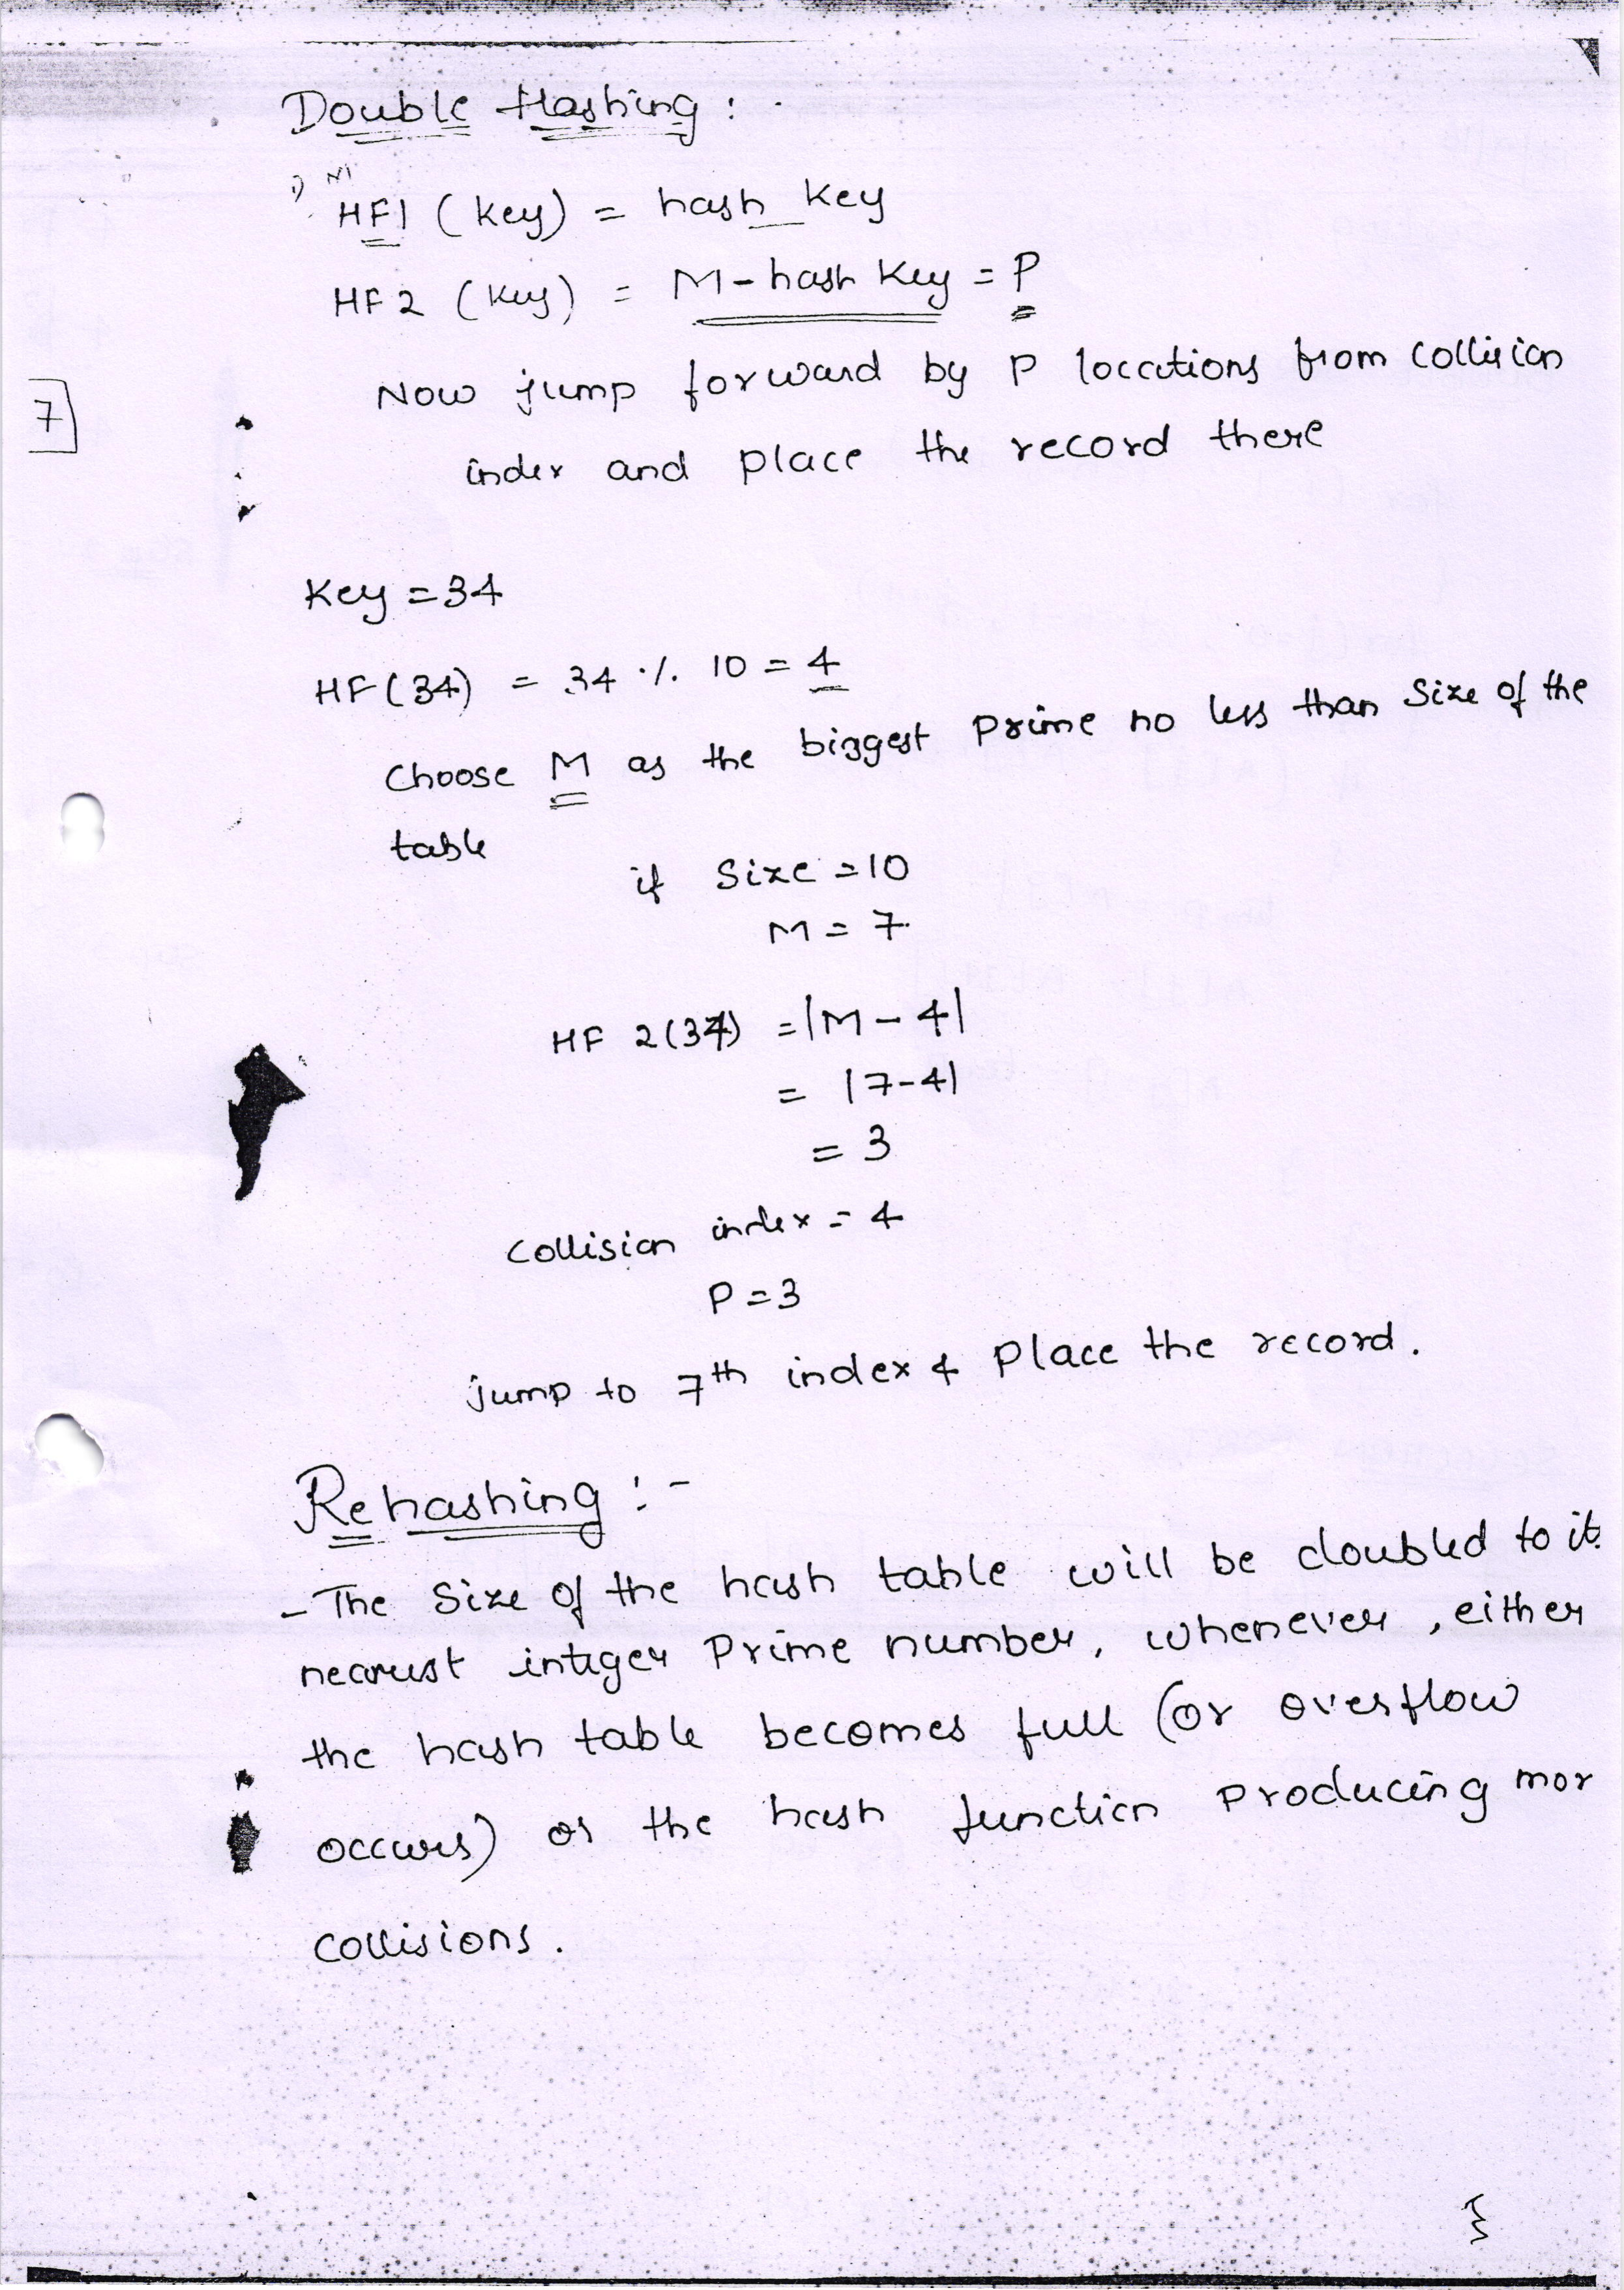 Double Hashing :
1) HF1 (key) = hash key
HF2 (key) = M - hash key = P
Now jump forward by P locations from collision
7
index and place the record there
Key = 34
HF(34) = 34 % 10 = 4
Choose M as the biggest prime no less than size of the
table
if size = 10
M = 7
HF 2(34) = |M - 4|
= |7-4|
= 3
collision index = 4
P = 3
jump to 7th index & place the record.
Rehashing :-
- The size of the hash table will be doubled to its
nearest integer Prime number, whenever, either
the hash table becomes full (or overflow
occurs) or the hash function producing mor
collisions.